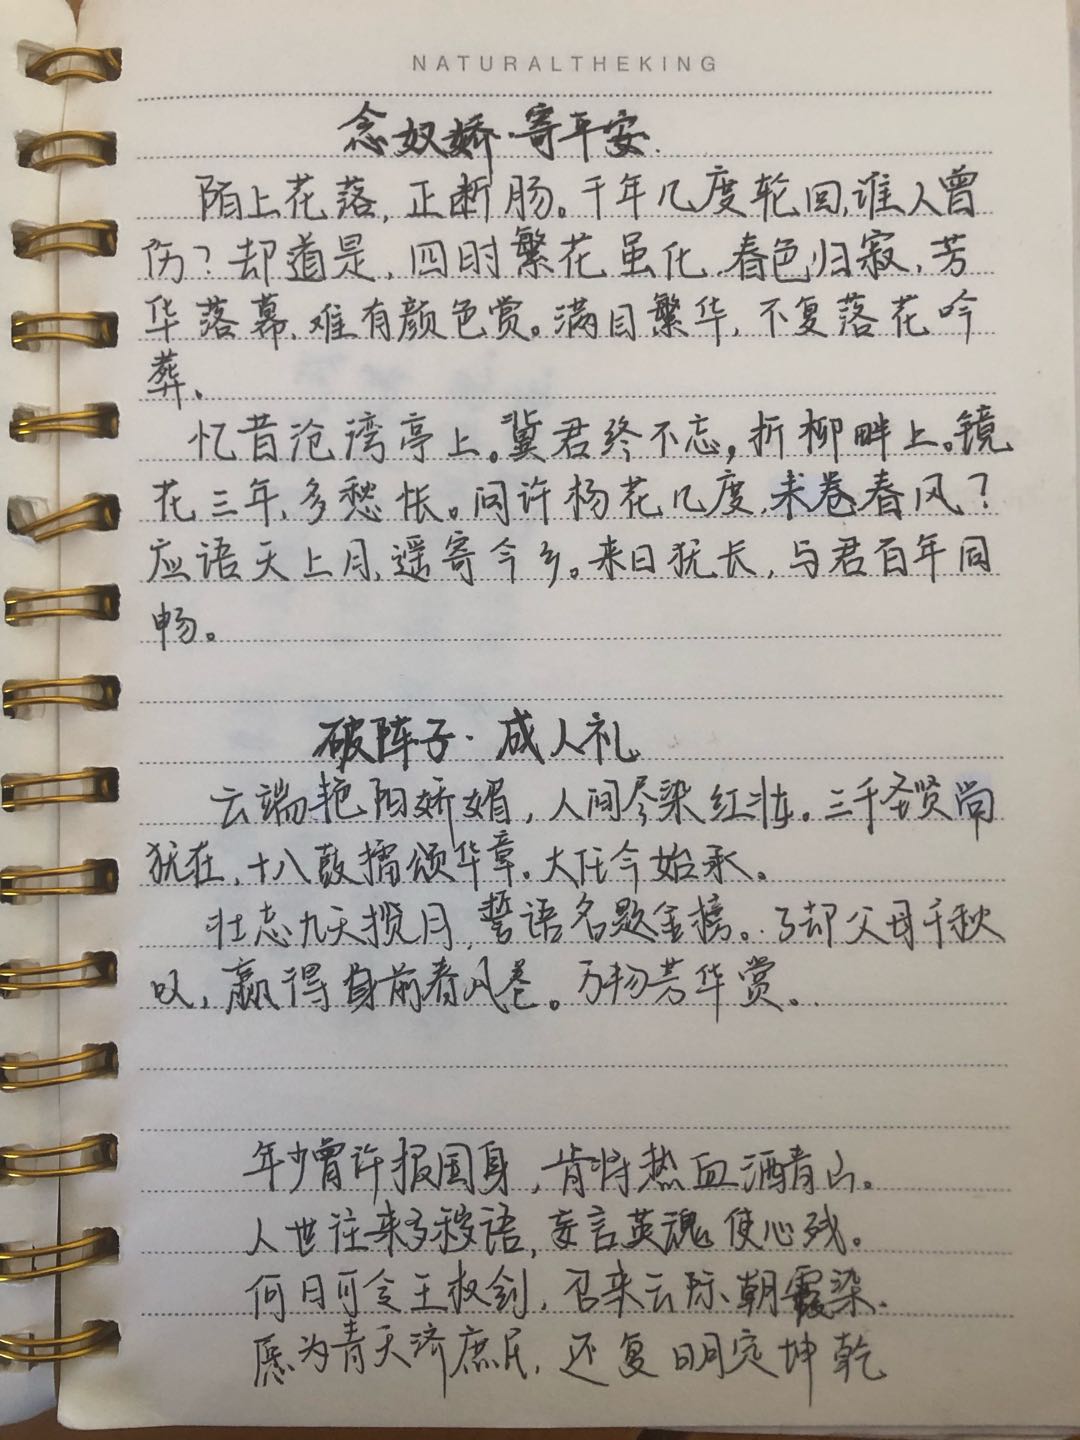 NATURALTHEKING
念奴娇·寄平安
陌上花落,正断肠。千年几度轮回,谁人曾
伤?却道是,四时繁花虽化,春色归寂,芳
华落幕,难有颜色赏。满目繁华,不复落花吟
葬、
忆昔沧湾亭上。冀君终不忘,折柳畔上。镜
花三年,多愁怅。问许杨花几度,来卷春风?
应语天上月,遥寄今乡。来日犹长,与君百年同
畅。
破阵子·成人礼
云端艳阳娇媚,人间尽染红妆。三千圣贤尚
犹在,十八鼓擂颂华章。大任今始承。
壮志九天揽月,誓语名题金榜。了却父母千秋
叹,赢得身前春风卷。万物芳华赏。
年少曾许报国身,肯将热血洒青山。
人世往来多秽语,妄言英魂使心残。
何日可令王权剑,召来云际朝霞染.
愿为青天济庶民,还复明定坤乾